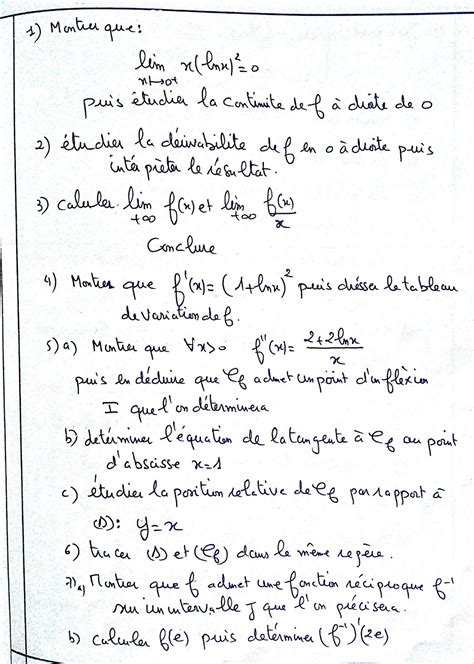 1) Montrer que:
lim x(lnx)²=0
x→0+
puis étudier la continuité de f à droite de 0
2) étudier la dérivabilité de f en 0 à droite puis
intérpréter le résultat.
3) calculer lim f(x) et lim f(x)/x
+∞ +∞
Conclure
4) Montrer que f'(x)=(1+lnx)² puis dresser le tableau
de variation de f.
5) a) Montrer que ∀x>0 f''(x)= (2+2lnx)/x
puis en déduire que Cf admet un point d'inflexion
I que l'on déterminera
b) determiner l'équation de la tangente à Cf au point
d'abscisse x=1
c) étudier la position relative de Cf par rapport à
(Δ): y=x
6) tracer (Δ) et (Cf) dans le même repère.
7) a) Montrer que f admet une fonction réciproque f⁻¹
sur un intervalle J que l'on précisera.
b) calculer f(e) puis determiner (f⁻¹)'(2e)